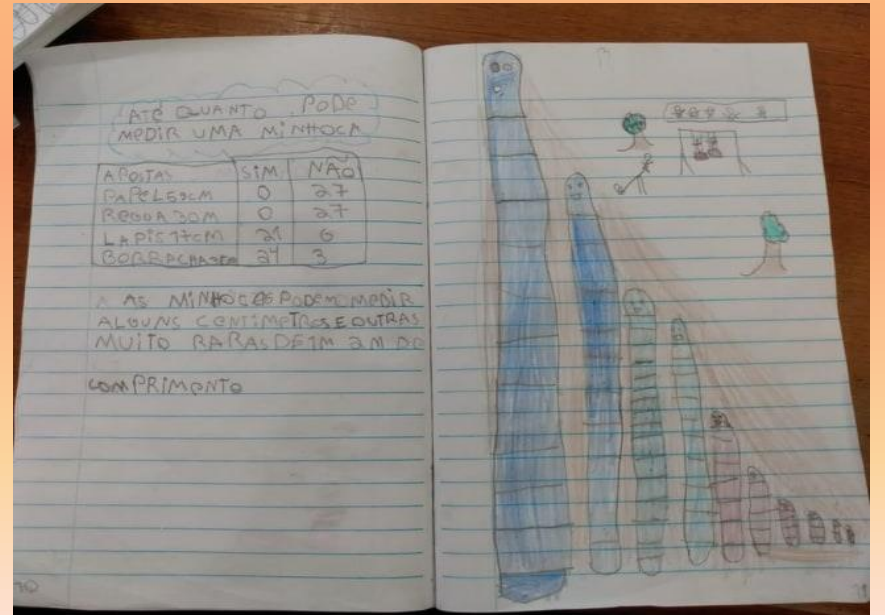 ATÉ QUANTO PODE
MEDIR UMA MINHOCA
APOSTAS SIM NÃO
PAPEL 59CM 0 27
REGUA 30M 0 27
LAPIS 17CM 21 6
BORRACHA 24 3
AS MINHOCAS PODEM MEDIR
ALGUNS CENTIMETROS E OUTRAS
MUITO RARAS DE 1M 2M DE
COMPRIMENTO